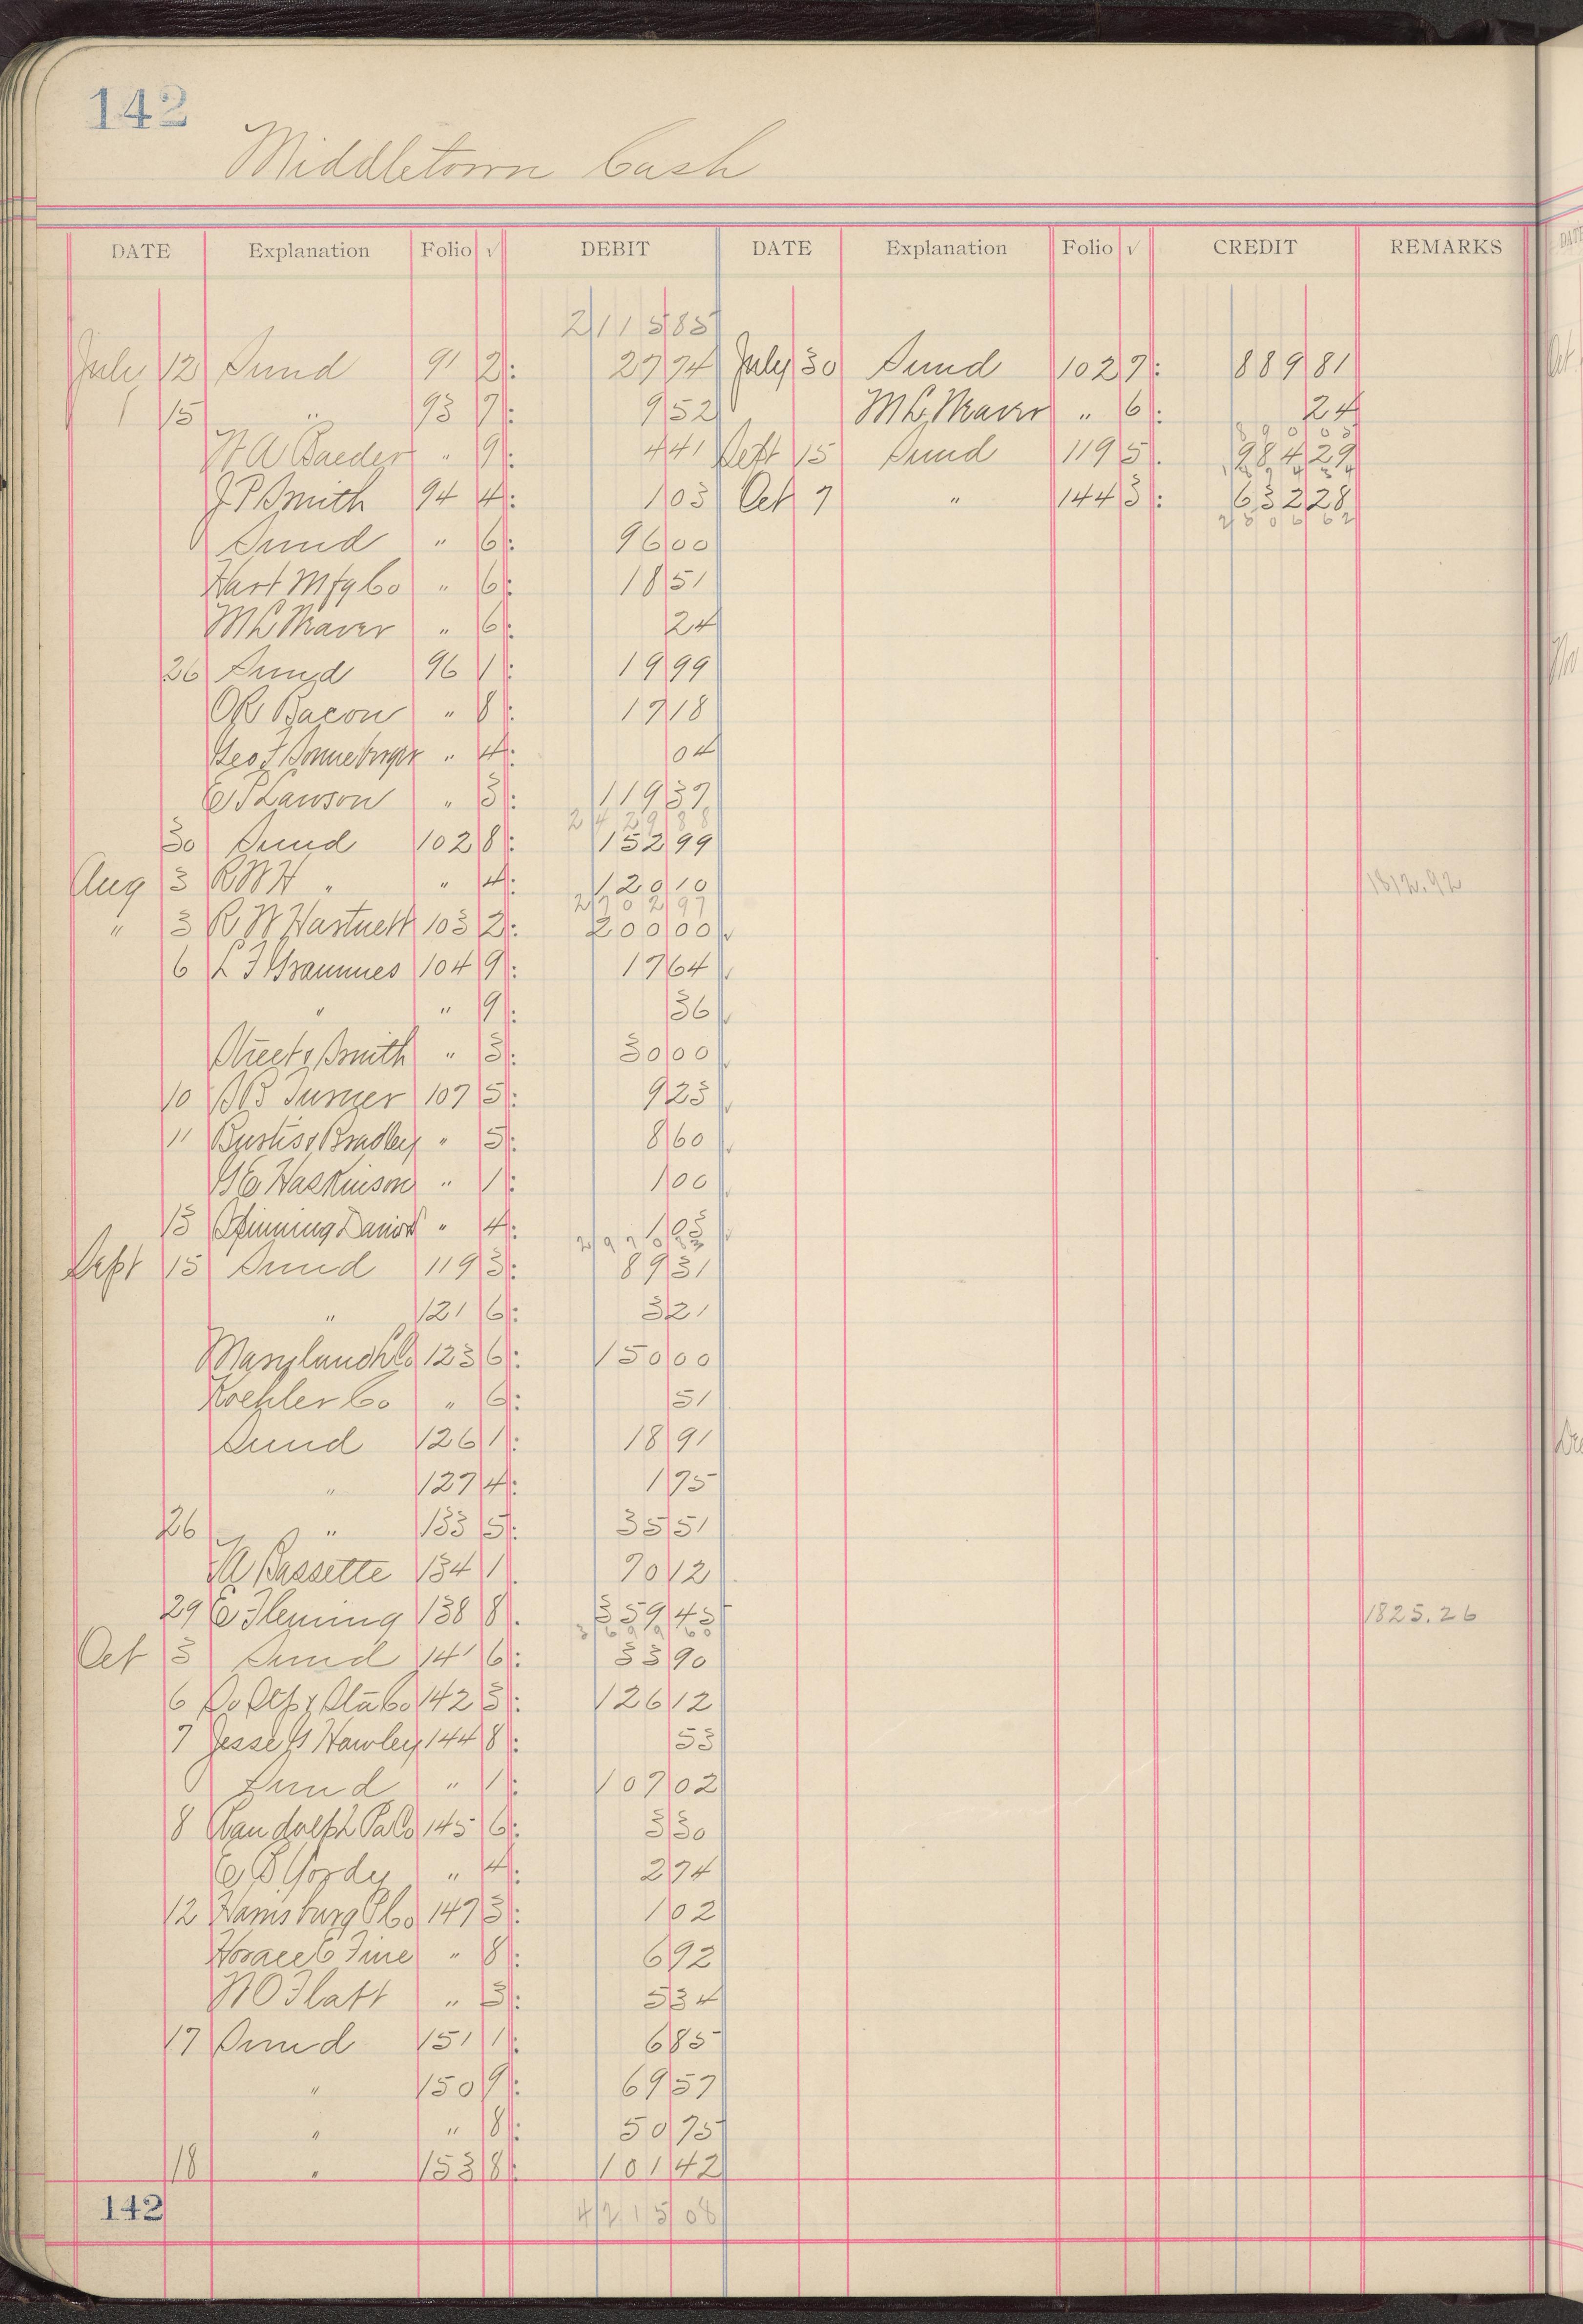 142
Middletown Cash
DATE Explanation Folio √ DEBIT DATE Explanation Folio √ CREDIT REMARKS
2115 85
July 12 Sund 91 2: 27 74 July 30 Sund 102 7: 889 81
15 " 93 7: 9 52 M L Weaver " 6: 24
890 05
W A Baeder " 9: 4 41 Sept 15 Sund 119 5. 984 29
1874 34
J P Smith 94 4: 1 03 Oct 7 " 144 3: 632 28
2506 62
Sund " 6: 96 00
Hart Mfg Co " 6: 18 51
M L Weaver " 6: 24
26 Sund 96 1: 19 99
O R Bacon " 8: 17 18
Geo F " 4: 04
E P Lawson " 3: 119 37
2429 88
30 Sund 102 8: 152 99
Aug 3 R W H " " 4: 120 10 1812.92
2702 97
" 3 R W Hartnett 103 2: 200 00 √
6 L F Grammes 104 9: 17 64 √
" " 9: 36 √
Street & Smith " 3: 30 00
10 B B Turner 107 5: 9 23 √
11 Bustis & Bradley " 5: 8 60 √
G E Haskinson " 1: 1 00
13 Spinning " 4: 1 03
2970 83
Sept 15 Sund 119 3: 89 31
" 121 6: 3 21
Maryland Co 123 6: 150 00
Koehler Co " 6: 51
Sund 126 1: 18 91
" 127 4: 1 75
26 " 133 5: 35 51
A Bassette 134 1. 70 12
29 E Fleming 138 8. 359 45 1825.26
3699 60
Oct 3 Sund 141 6: 33 90
6 142 3: 126 12
7 Jesse G Hawley 144 8: 53
Sund " 1: 107 02
8 Randolph Pa Co 145 6: 3 30
E S Gordy " 4: 2 74
12 Harrisburg P Co 147 3: 1 02
Horace E Fine " 8: 6 92
W O Flatt " 3: 5 34
17 Sund 151 1: 6 85
" 150 9: 69 57
" " 8: 50 75
18 " 153 8: 101 42
142 4215 08